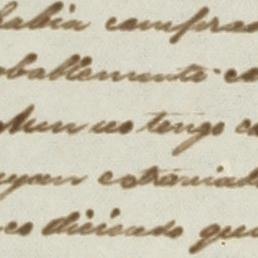 habia comprad
obablemente e
Aun no tengo c
yan estraviad
co diciendo que